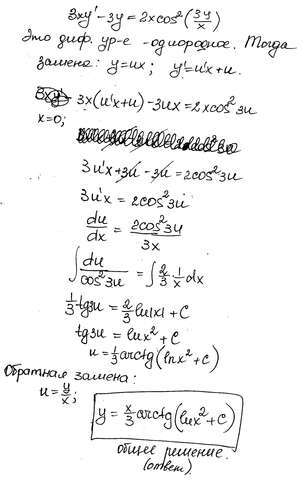 3xy' - 3y = 2x cos²(3y/x)
Это диф. ур-е - однородное. Тогда
замена: y = ux; y' = u'x + u.
3xy' 3x(u'x + u) - 3ux = 2x cos² 3u
x = 0;
3u'x + 3u - 3u = 2cos² 3u
3u'x = 2cos² 3u
du/dx = 2cos² 3u / 3x
∫ du/cos² 3u = ∫ 2/3 · 1/x dx
1/3 tg3u = 2/3 ln|x| + C
tg3u = lnx² + C
u = 1/3 arctg(lnx² + C)
Обратная замена:
u = y/x;
y = x/3 arctg(lnx² + C)
общее решение.
(ответ).